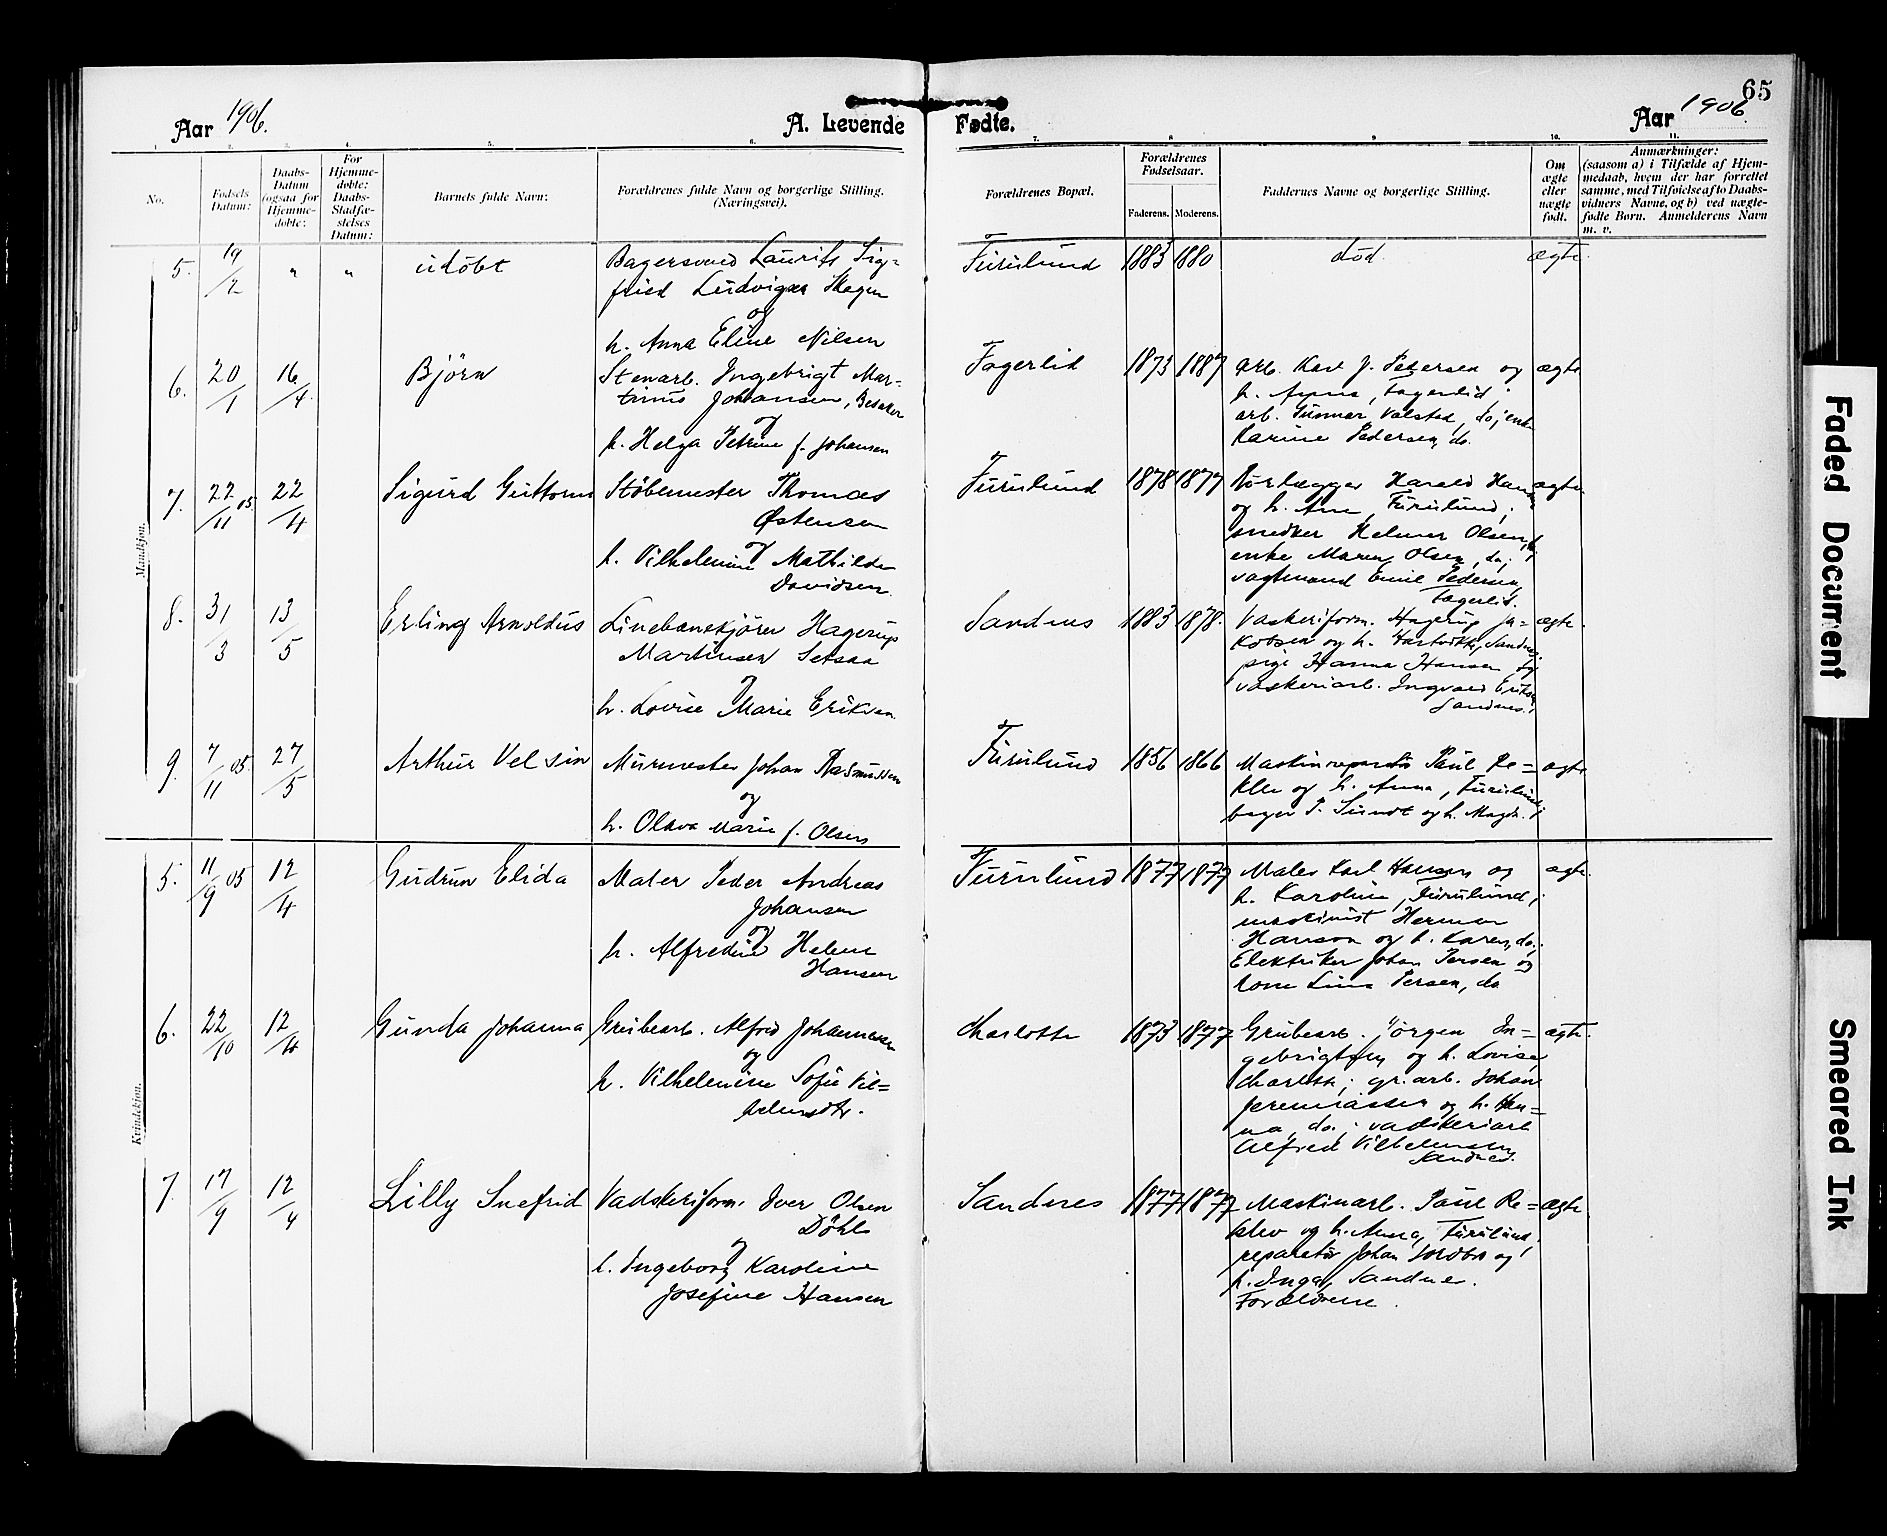 65
Aar 1906.
A. Levende Fødte.
Aar 1906.
1. 2. 3. 4. 5. 6. 7. 8 9 10. 11.
No.
Fødsels Datum:
Daabs-
Datum
(ogsaa for
Hjemme-
døbte:
For
Hjemme-
døbte:
Daabs-
Stadfæ-
stelses
Datum:
Barnets fulde Navn:
Forældrenes fulde Navn og borgerlige Stilling.
(Næringsvei).
Forældrenes Bopæl.
Forældrenes
Fødselsaar.
Faderens. Moderens.
Faddernes Navne og borgerlige Stilling.
Om
ægte
eller
uægte
født.
Anmærkninger:
(saasom a) i Tilfælde af Hjem-
medaab, hvem der har forrettet
samme, med Tilføielse af to Daabs-
vidners Navne, og b) ved uægte-
fødte Børn. Anmelderens Navn
m. v.
Mandkjøn.
5. 19/2 " " udøbt
Bagersvend Laurits Sig=
fried Ludvigsen Skogen
og
h. Anna Eline Nilsen
Furulund 1883 1880 død. ægte.
6. 20/1 16/4 Björn
Stenarb. Ingebrigt Mar-
tinus Johansen, Besaker
og
h. Helga Petrine f. Johansen
Fagerlid 1873 1887
arb. Karl J. Pedersen og
h. Anna, Fagerlid;
arb. Gunnar Valstad, do; enke
Karine Pedersen, do.
ægte
7. 22/11 05. 22/4 Sigurd Guttorm
Støbemester Thomas
Østensen
og
h. Vilhelmine Mathilde
Davidsen.
Furulund 1878 1877
Rørlægger Harald Hansen
og h. Ane, Furulund;
snedker Helmer Olsen,
enke Maren Olsen, do;
vagtmand Emil Pedersen,
Fagerlid.
ægte.
8. 31/3 13/5 Erling Arnoldus
Linebanekjører Hagerup
Martinsen Setsaa
og
h. Lovise Marie Eriksen
Sandnes 1883 1878.
Vaskeriform. Hagerup Ja=
kobsen og h. Sandnes;
pige Hanna Hansen og
vaskeriarb. Ingvald Eriksen
Sandnes.
ægte.
9. 7/11 05. 27/5 Arthur Velsin
Murmester Johan Rasmussen
og
h. Olava Marie f. Olsen
Furulund 1856 1866
Maskinreparatør Paul Re=
klev og h. Anna, Furulund;
bager P. Sundt og h. Magda.
ægte
Kvindekjøn.
5. 11/9 05 12/4 Gudrun Elida
Maler Peder Andreas
Johansen
og
h. Alfredine Helene
Hansen
Furulund 1877 1877
Maler Karl Hansen og
h. Karoline, Furulund;
maskinist Herman
Hanson og h. Karen, do;
Elektriker Johan Persen og
kone Lina Persen, do
ægte.
6. 22/10 12/4 Gunda Johanna
Grubearb. Alfred Johannesen
og
h. Vilhelmine Sofie Vil=
helmsdtr.
Charlotta 1873 1877
Grubearb. Jørgen In=
gebrigtsen og h. Lovise,
Charlotta; gr.arb. Johan
Jeremiassen og h. Han=
na, do.; vadskeriarb
Alfred Vilhelmsen,
Sandnes.
ægte.
7. 17/9 12/4 Lilly Snefrid
Vadskeriform. Iver Olsen
Döhl
og
h. Ingeborg Karoline
Josefine Hansen
Sandnes 1877 1877
Maskinarb. Paul Re=
klev og h. Anna, Furulund;
reparatør Johan Jordbro og
h. Inga, Sandnes.
Forældrene.
ægte.
Faded Document
Smeared Ink